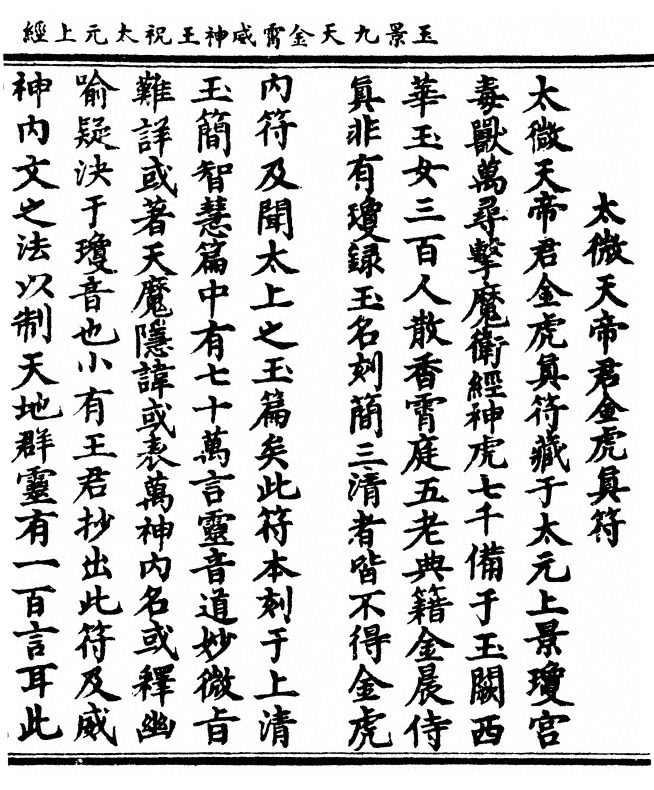 玉景九天金霄威神王祝太元上經
太微天帝君金虎真符
太微天帝君金虎真符藏于太元上景瓊宮
毒獸萬尋擊魔衛經神虎七千備于玉闕西
華玉女三百人散香霄庭五老典籍金晨侍
真非有瓊録玉名刻簡三清者皆不得金虎
内符及聞太上之玉篇矣此符本刻于上清
玉簡智慧篇中有七十萬言靈音道妙微旨
難詳或著天魔隱諱或表萬神内名或釋幽
喻疑決于瓊音也小有王君抄出此符及威
神内文之法以制天地群靈有一百言耳此